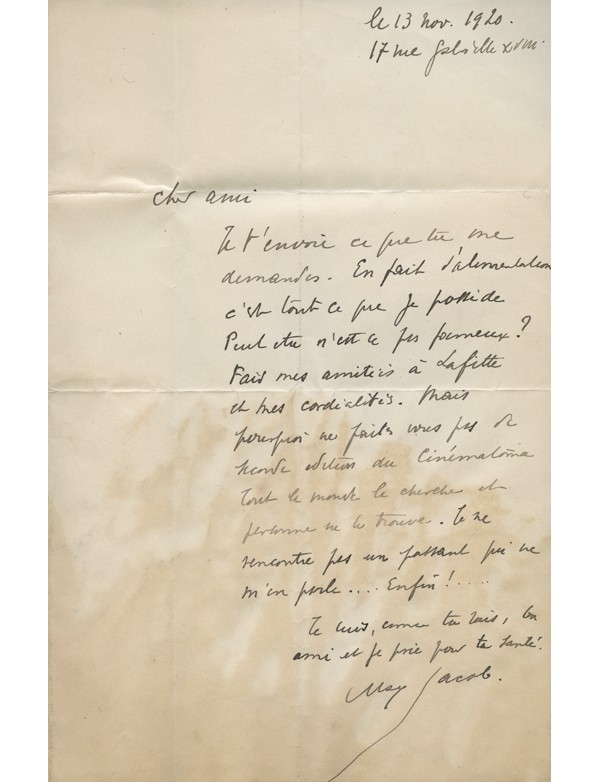 le 13 nov. 1920.
17 rue Gabrielle XVIII
cher ami
Je t'envoie ce que tu me
demandes. En fait d'alimentation
c'est tout ce que je possède
Peut etre n'est ce pas fameux ?
Fais mes amitiés à Lafitte
et mes cordialités. Mais
pourquoi ne faites vous pas de
seconde edition du Cinématoma
Tout le monde le cherche et
personne ne le trouve. Je ne
rencontre pas un passant qui ne
m'en parle .... Enfin ! ....
Je suis, comme tu sais, ton
ami et je prie pour ta santé.
Max Jacob.